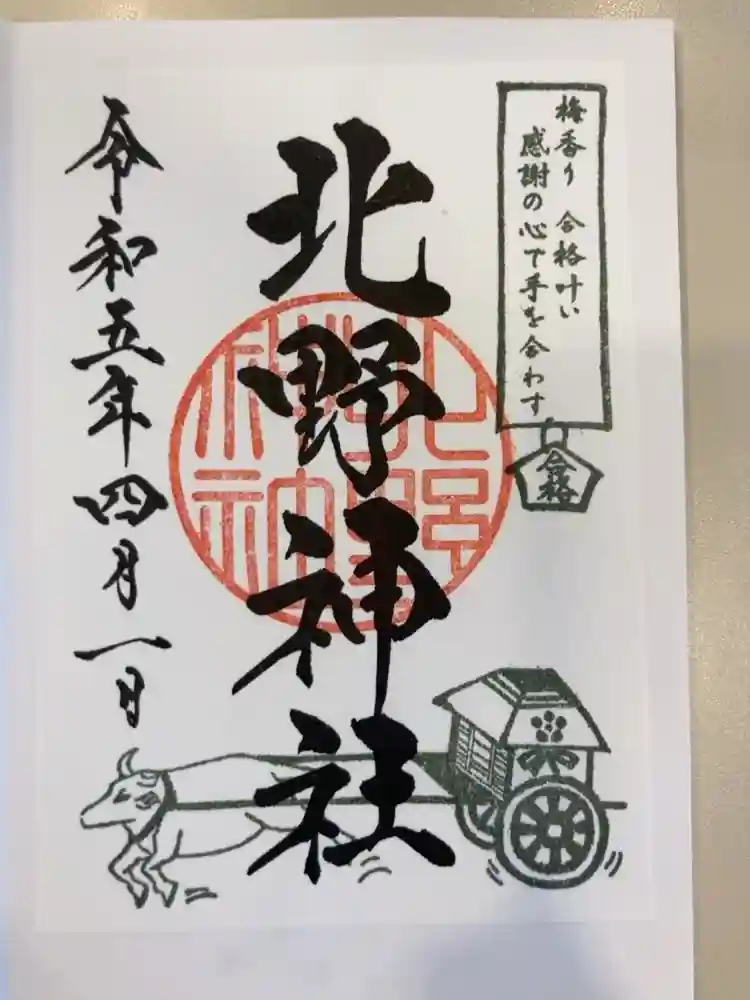 梅香り 合格叶い
感謝の心で手を合わす
合格
北野神社
北野
神社
令和五年四月一日